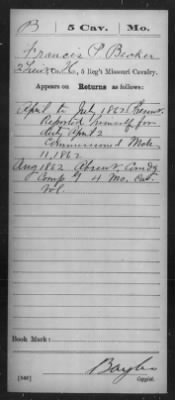 B | 5 Cav. | Mo.
Francis P. Becker
2 Lieut Co. K, 5 Reg't Missouri Cavalry.
Appears on Returns as follows:
April to July 1862 Present.
Reported himself for
duty April 2
Commissioned Mch
11, 1862
Aug 1862 Absent. Comdg
Comp 4 Mo. Cav.
Vol.
Book Mark:
Bayles
(546) Copyist.